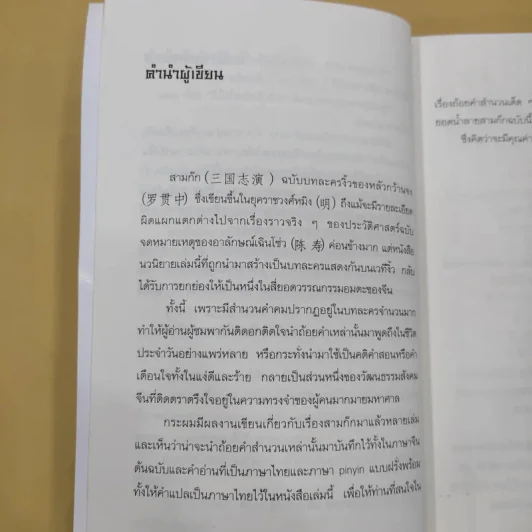 คำนำผู้เขียน
สามก๊ก (三国志演) ฉบับบทละครงิ้วของหลัวกว้านจง
(罗贯中) ซึ่งเขียนขึ้นในยุคราชวงศ์หมิง (明) ถึงแม้จะมีรายละเอียด
ผิดแผกแตกต่างไปจากเรื่องราวจริง ๆ ของประวัติศาสตร์ฉบับ
จดหมายเหตุของอาลักษณ์เฉินโซ่ว (陈寿) ค่อนข้างมาก แต่หนังสือ
นวนิยายเล่มนี้ที่ถูกนำมาสร้างเป็นบทละครแสดงกันบนเวทีงิ้ว กลับ
ได้รับการยกย่องให้เป็นหนึ่งในสี่ยอดวรรณกรรมอมตะของจีน
ทั้งนี้ เพราะมีสำนวนคำคมปรากฏอยู่ในบทละครจำนวนมาก
ทำให้ผู้อ่านผู้ชมพากันติดอกติดใจนำถ้อยคำเหล่านั้นมาพูดถึงในชีวิต
ประจำวันอย่างแพร่หลาย หรือกระทั่งนำมาใช้เป็นคติคำสอนหรือคำ
เตือนใจทั้งในแง่ดีและร้าย กลายเป็นส่วนหนึ่งของวัฒนธรรมสังคม
จีนที่ติดตราตรึงใจอยู่ในความทรงจำของผู้คนมากมายมหาศาล
กระผมมีผลงานเขียนเกี่ยวกับเรื่องสามก๊กมาแล้วหลายเล่ม
และเห็นว่าน่าจะนำถ้อยคำสำนวนเหล่านั้นมาบันทึกไว้ทั้งในภาษาจีน
ต้นฉบับและคำอ่านที่เป็นภาษาไทยและภาษา pinyin แบบฝรั่งพร้อม
ทั้งให้คำแปลเป็นภาษาไทยไว้ในหนังสือเล่มนี้ เพื่อให้ท่านที่สนใจใน
เรื่องถ้อยคำสำนวนเด็ด ๆ
ยอดน้ำลายสามก๊กฉบับนี้
ซึ่งคิดว่าจะมีคุณค่า